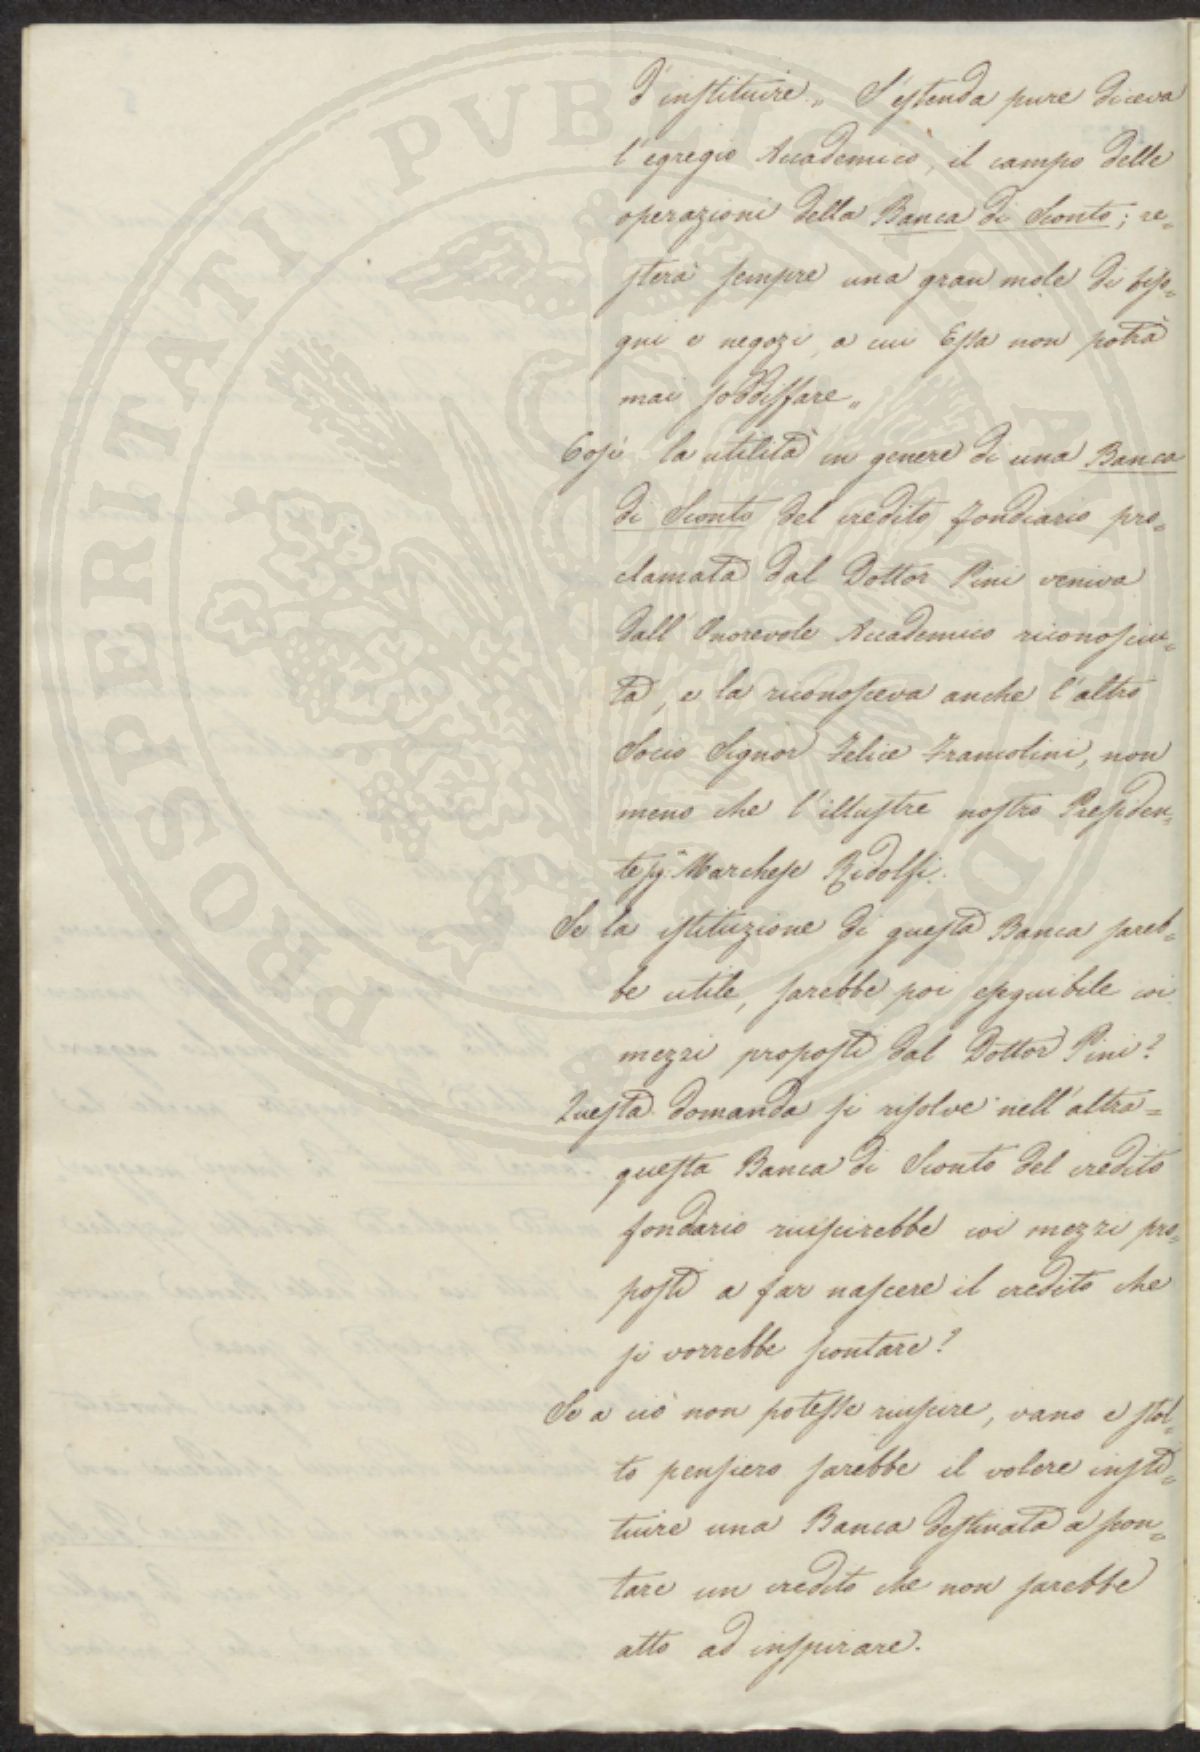 d'instituire „ S'estenda pure diceva
l'egregio Accademico, il campo delle
operazioni della Banca di Sconto; re=
sterà sempre una gran mole di biso=
gni e negozi, a cui Essa non potrà
mai soddisfare „
Così la utilità in genere di una Banca
di Sconto del credito fondiario pro=
clamata dal Dottor Pini veniva
dall'Onorevole Accademico riconosciu=
ta, e la riconosceva anche l'altro
Socio Signor Felice Francolini, non
meno che l'illustre nostro Presiden=
te Sig.r Marchese Ridolfi.
Se la istituzione di questa Banca sareb=
be utile, sarebbe poi eseguibile coi
mezzi proposti dal Dottor Pini?
Questa domanda si risolve nell'altra=
questa Banca di Sconto del credito
fondario riuscirebbe coi mezzi pro=
posti a far nascere il credito che
si vorrebbe scontare?
Se a ciò non potesse riuscire, vano e stol=
to pensiero sarebbe il volere insti=
tuire una Banca destinata a scon=
tare un credito che non sarebbe
atto ad inspirare.
PROSPERITATI PUBLICAE AUGENDAE